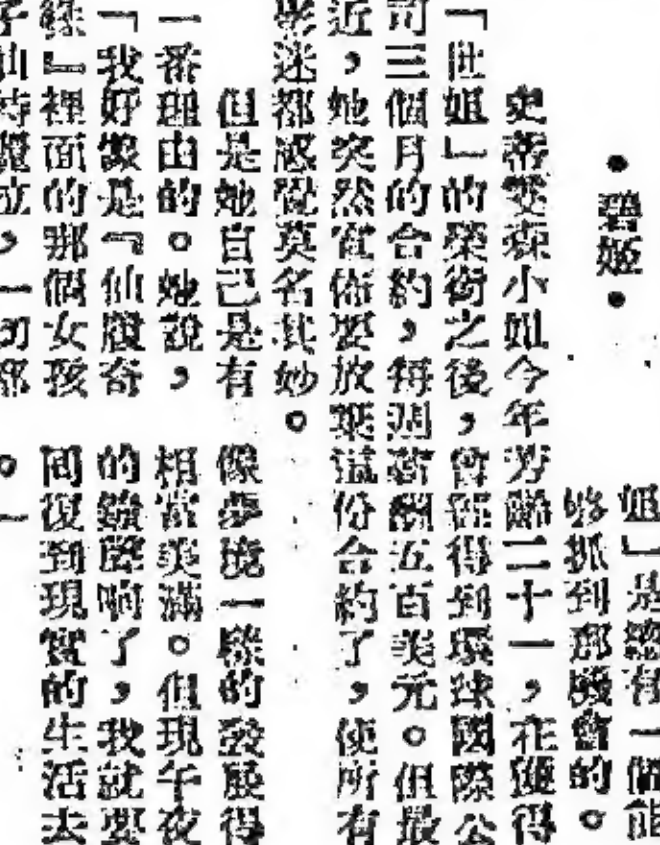 姐」是總有一個能
够抓到那機會的。
•碧姬•
史蒂雯森小姐今年芳齡二十一，在獲得
「世姐」的榮銜之後，曾經得到環球國際公
司三個月的合約，每週薪酬五百美元。但最
近，她突然宣佈要放棄這份合約了，使所有
影迷都感覺莫名其妙。
但是她自己是有
一番理由的。她說，
「我好像是『仙履奇
緣』裡面的那個女孩
，一切都
像夢境一樣的發展得
相當美滿。但現午夜
的鐘聲响了，我就要
回復到現實的生活去
。」